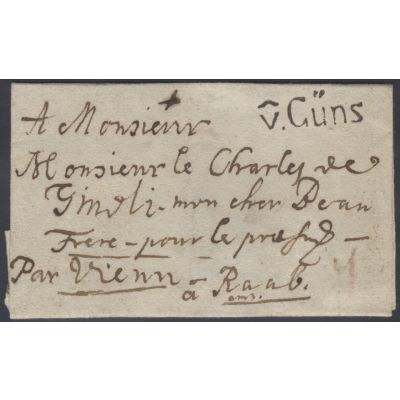 v. Güns
A Monsieur
Monsieur le Charles de
mon cher Beau
Frere pour le
Par Vienn
à Raab.